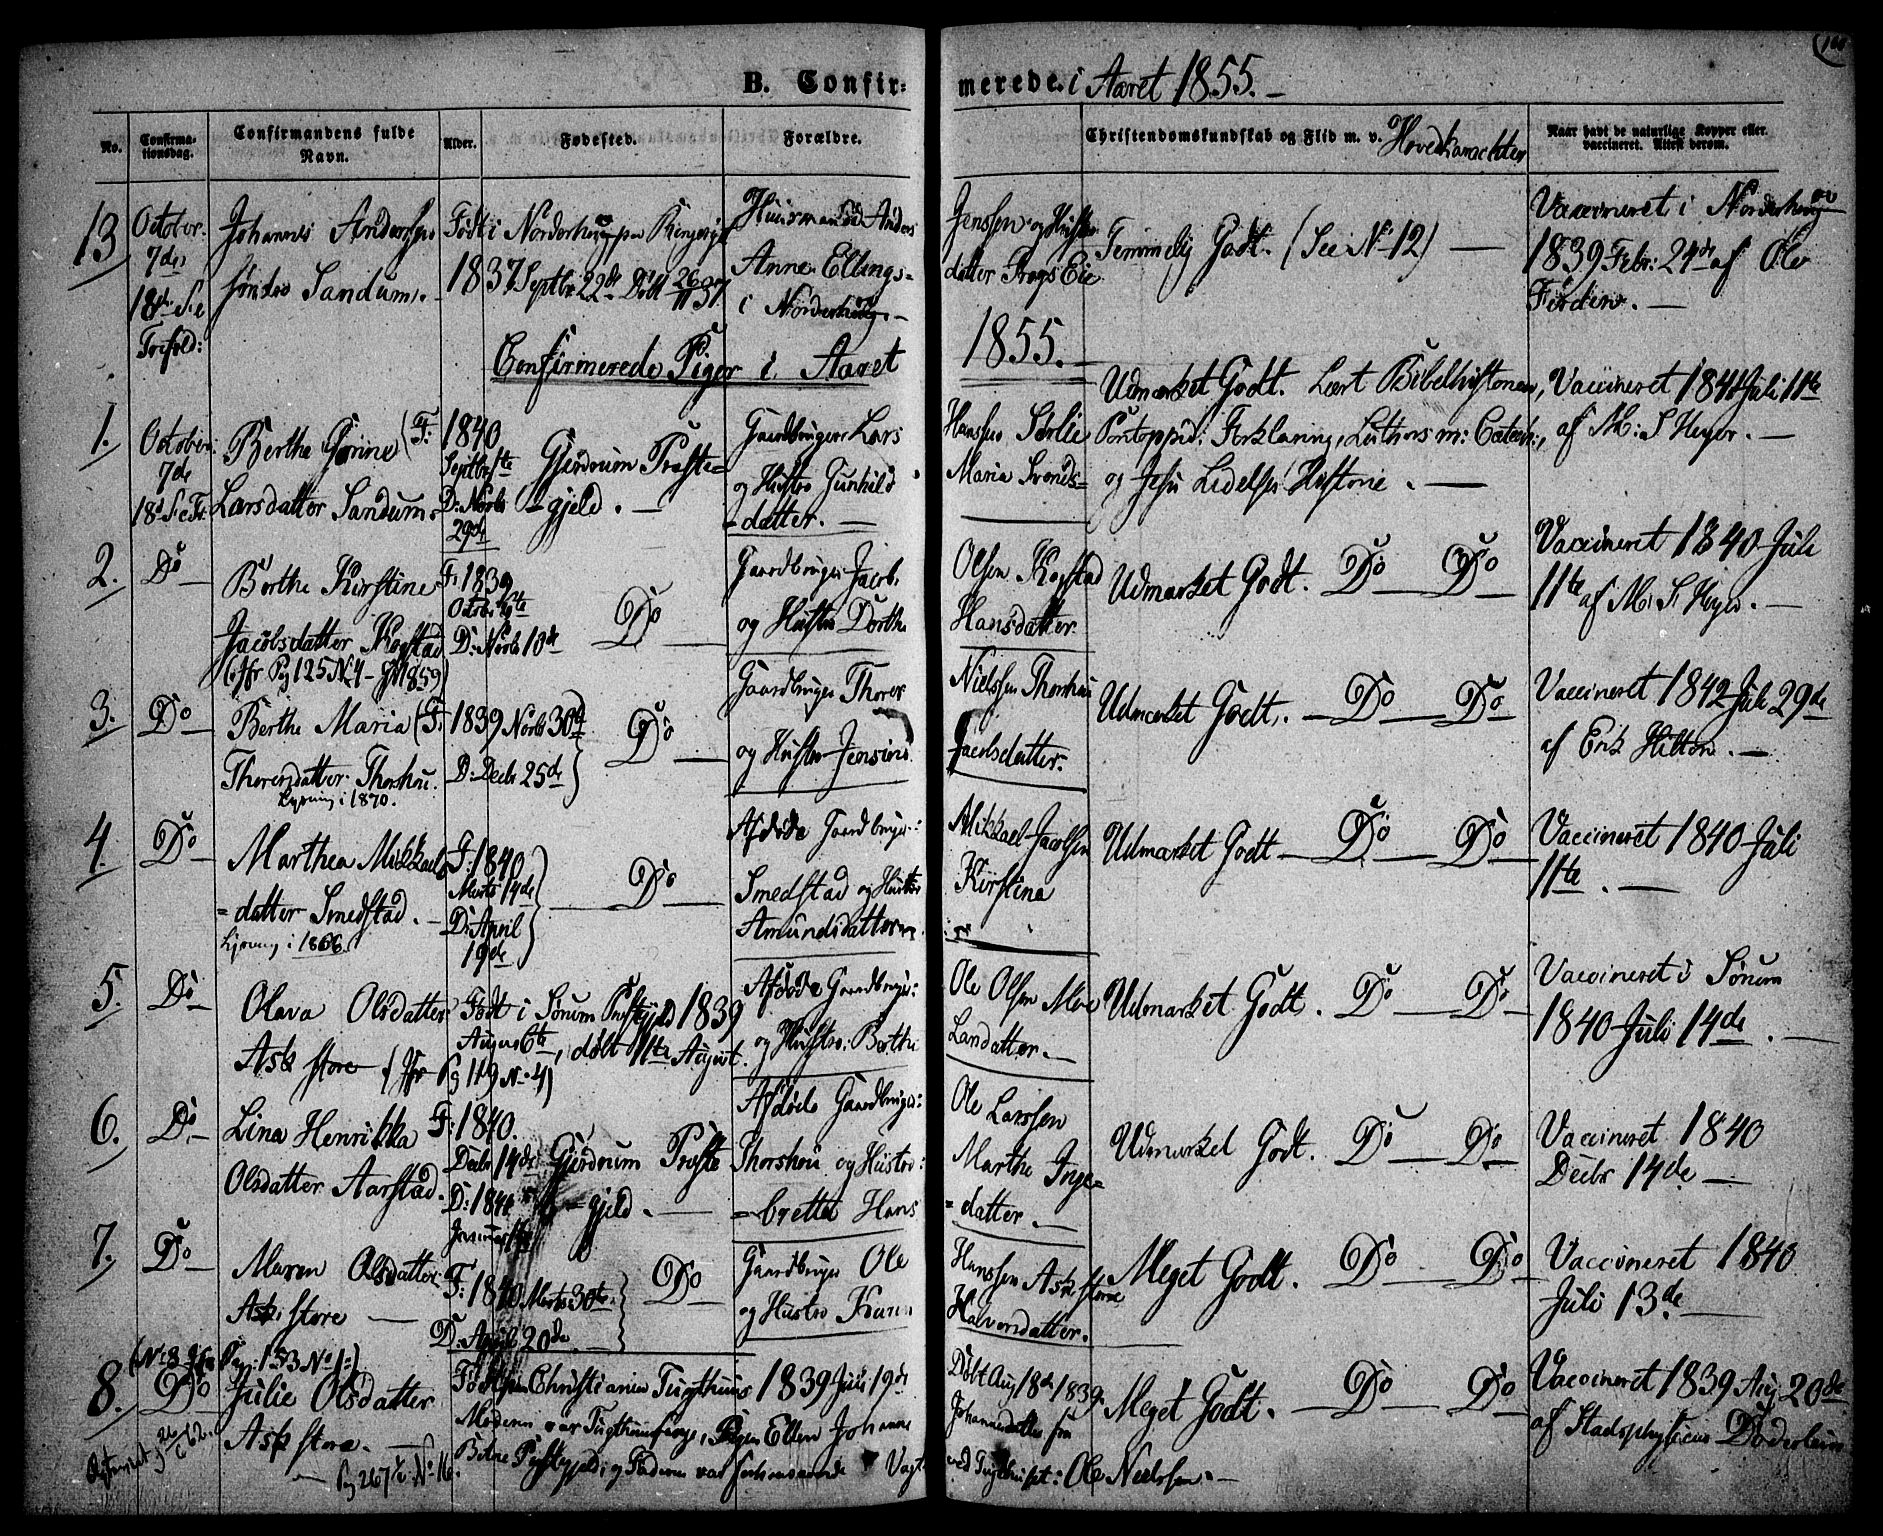 B. Confirmerede. i Aaret 1855. –
No.
Confirmationsdag.
Confirmandens fulde Navn.
Alder.
Fødested.
Forældre.
Christendomskundskab og Flid m. v. Hovedkarackter
Naar havt de naturlige Kopper eller vaccineret. Attest derom.
13
October
7de
18de S. e
Trefold:
Johannes Anders
Sandum. –
Født i Norderhoug paa Ringerige
1837 Septbr 22de Døbt 26/11 37
Huusmand Anders Jenssen og Hustro
Anne Ellings- datter Eie
i Norderhoug. –
Temmelig Godt. (See No 12) —
Vaccineret i Norderhoug
1839 Febr: 24de af Ole
Confirmerede Piger i Aaret 1855. –
1.
October
7de
18de S. e Tr.
Berthe Gorine (F.
Larsdatter Sandum.
1840
Septbr
D: Novbr
29de
Gjerdrum Præste-
-gjeld. –
Gaardbruger Lars Hanssen Sørlie
og Hustro Gunhild Maria Svends-
-datter. —
Udmærket Godt. Lært Bibelhistorien,
Pontoppid: Forklaring, Luthers m: Catech:,
og Jesu Lidelses Historie. —
Vaccineret 1841 Juli 11te
af M: S Heyer. —
2.
Do –
Berthe Kirstine
Jacobsdatter Kogstad
(: Jfr Pag 125 No 4 – 1859)
F: 1839
Octobr
D: Novbr 10de
Do
Gaardbruger Jacob Olsen Kogstad
og Hustro Dorthe Hansdatter.
Udmærket Godt. Do — Do —
Vaccineret 1840 Juli
11te af M: S: Heyer. —
3.
Do –
Berthe Maria (F.
Thorersdatter Thorshou.
Lysning i 1870.
1839 Novbr 30de
D: Decbr 25de
Do
Gaardbruger Thorer Nielssen Thorshou
og Hustro Jensine Jacobsdatter.
Udmærket Godt. — Do — Do
Vaccineret 1842 Juli 29de
af Erik Hilton. —
4.
Do –
Marthea Mikkaels
=datter Smedstad. –
Lysning i 1866
F: 1840
Marts 14de
D: April
19de
Do
Afdøde Gaardbruger: Mikkael Jacobsen
Smedstad og Hustro Kirstine
Amundsdatter
Udmærket Godt — Do — Do
Vaccineret 1840 Juli
11te. —
5.
Do –
Olava Olsdatter
Ask store (Jfr Pg 119 No 4)
Født i Sørum Præstegjeld 1839
August 6te, døbt 11te August.
Afdøde Gaardbruger: Ole Olsen Moe
og Hustro: Berthe Larsdatter. —
Udmærket Godt. Do — Do —
Vaccineret i Sørum
1840 Juli 14de. —
6.
Do –
Lina Henrikka
Olsdatter Aarstad.
F: 1840.
Decbr 14de
D: 1841
Gjerdrum Præste
=gjeld. —
Afdøde Gaardbruger: Ole Larssen
Thorshou og Hustro: Marthe Inge=
=brette Hans =datter. —
Udmærket Godt. Do — Do
Vaccineret 1840
Decbr 14de —
7.
Do –
Maren Olsdatter
Ask store —
F: 1840 Marts 30te
D: April 20de
Do
Gaardbruger Ole Hanssen Ask store
og Hustro Karen Halvorsdatter.
Meget Godt. Do — Do
Vaccineret 1840
Juli 13de —
8.
(No 8 Pag: 153 No 1:)
Do
Julie Olsdatter
Ask store. —
Pg 267 No 16.
Født Christiania Tugthuus 1839 Juli 19de Døbt Aug 18de 1839
Moderen var Tugthuusfange, Pigen Ellen Johanne Johannesdatter fra
Præstegjeld, og Faderen var Vagt ved Tugthuset: Ole Nielssen. –
Meget Godt. Do — Do —
Vaccineret 1839 Aug 20de
af Stadsphysicus Døderlein